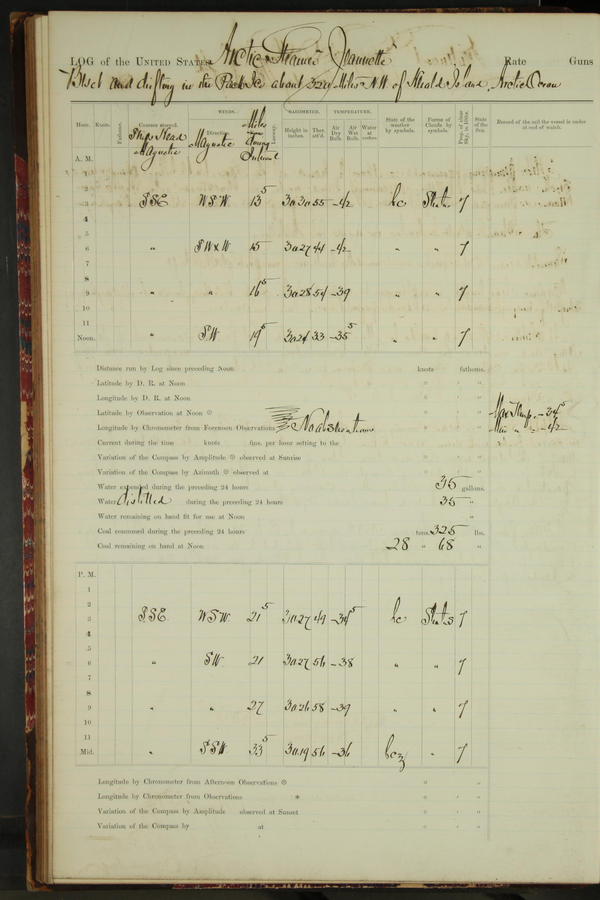 LOG of the UNITED STATES Arctic Steamer "Jeannette" Rate Guns
and drifting in the Pack Ice about Miles N.W. of Herald Island, Arctic Ocean
WINDS. BAROMETER. TEMPERATURE.
Hour. Knots. Fathoms. Courses steered. Ship's Head Magnetic Direction Magnetic Miles Leeway. Height in inches. Ther. att'd. Air Dry Bulb. Air Wet Bulb. Water at surface. State of the weather by symbols. Forms of Clouds by symbols. Prop. of clear Sky, in 10ths. State of the Sea. Record of the sail the vessel is under at end of watch.
A. M.
1
2
3 SSE WSW 13 5 30 30 55 -42 bc Stratus 7
4
5
6 " SW x W 15 30 27 44 -42 " " 7
7
8
9 " " 16 5 30 28 54 -39 " " 7
10
11
Noon. " SW 19 5 30 24 33 -35 5 " " 7
Distance run by Log since preceding Noon knots fathoms.
Latitude by D. R. at Noon ° ' "
Longitude by D. R. at Noon ° ' "
Latitude by Observation at Noon ° ' "
Longitude by Chronometer from Forenoon Observations No observations
Current during the time knots fms. per hour setting to the
Variation of the Compass by Amplitude observed at Sunrise
Variation of the Compass by Azimuth observed at
Water expended during the preceding 24 hours 35 gallons.
Water distilled during the preceding 24 hours 35 "
Water remaining on hand fit for use at Noon "
Coal consumed during the preceding 24 hours tons 325 lbs.
Coal remaining on hand at Noon 28 " 68 "
Max Temp. -34 5
Min " " -42
P. M.
1
2
3 SSE WSW 21 5 30 27 49 -34 5 bc Stratus 7
4
5
6 " SW 21 30 27 56 -38 " " 7
7
8
9 " " 27 30 26 58 -39 " " 7
10
11
Mid. " SSW 33 5 30 19 56 -36 bcz " 7
Longitude by Chronometer from Afternoon Observations
Longitude by Chronometer from Observations *
Variation of the Compass by Amplitude observed at Sunset
Variation of the Compass by at